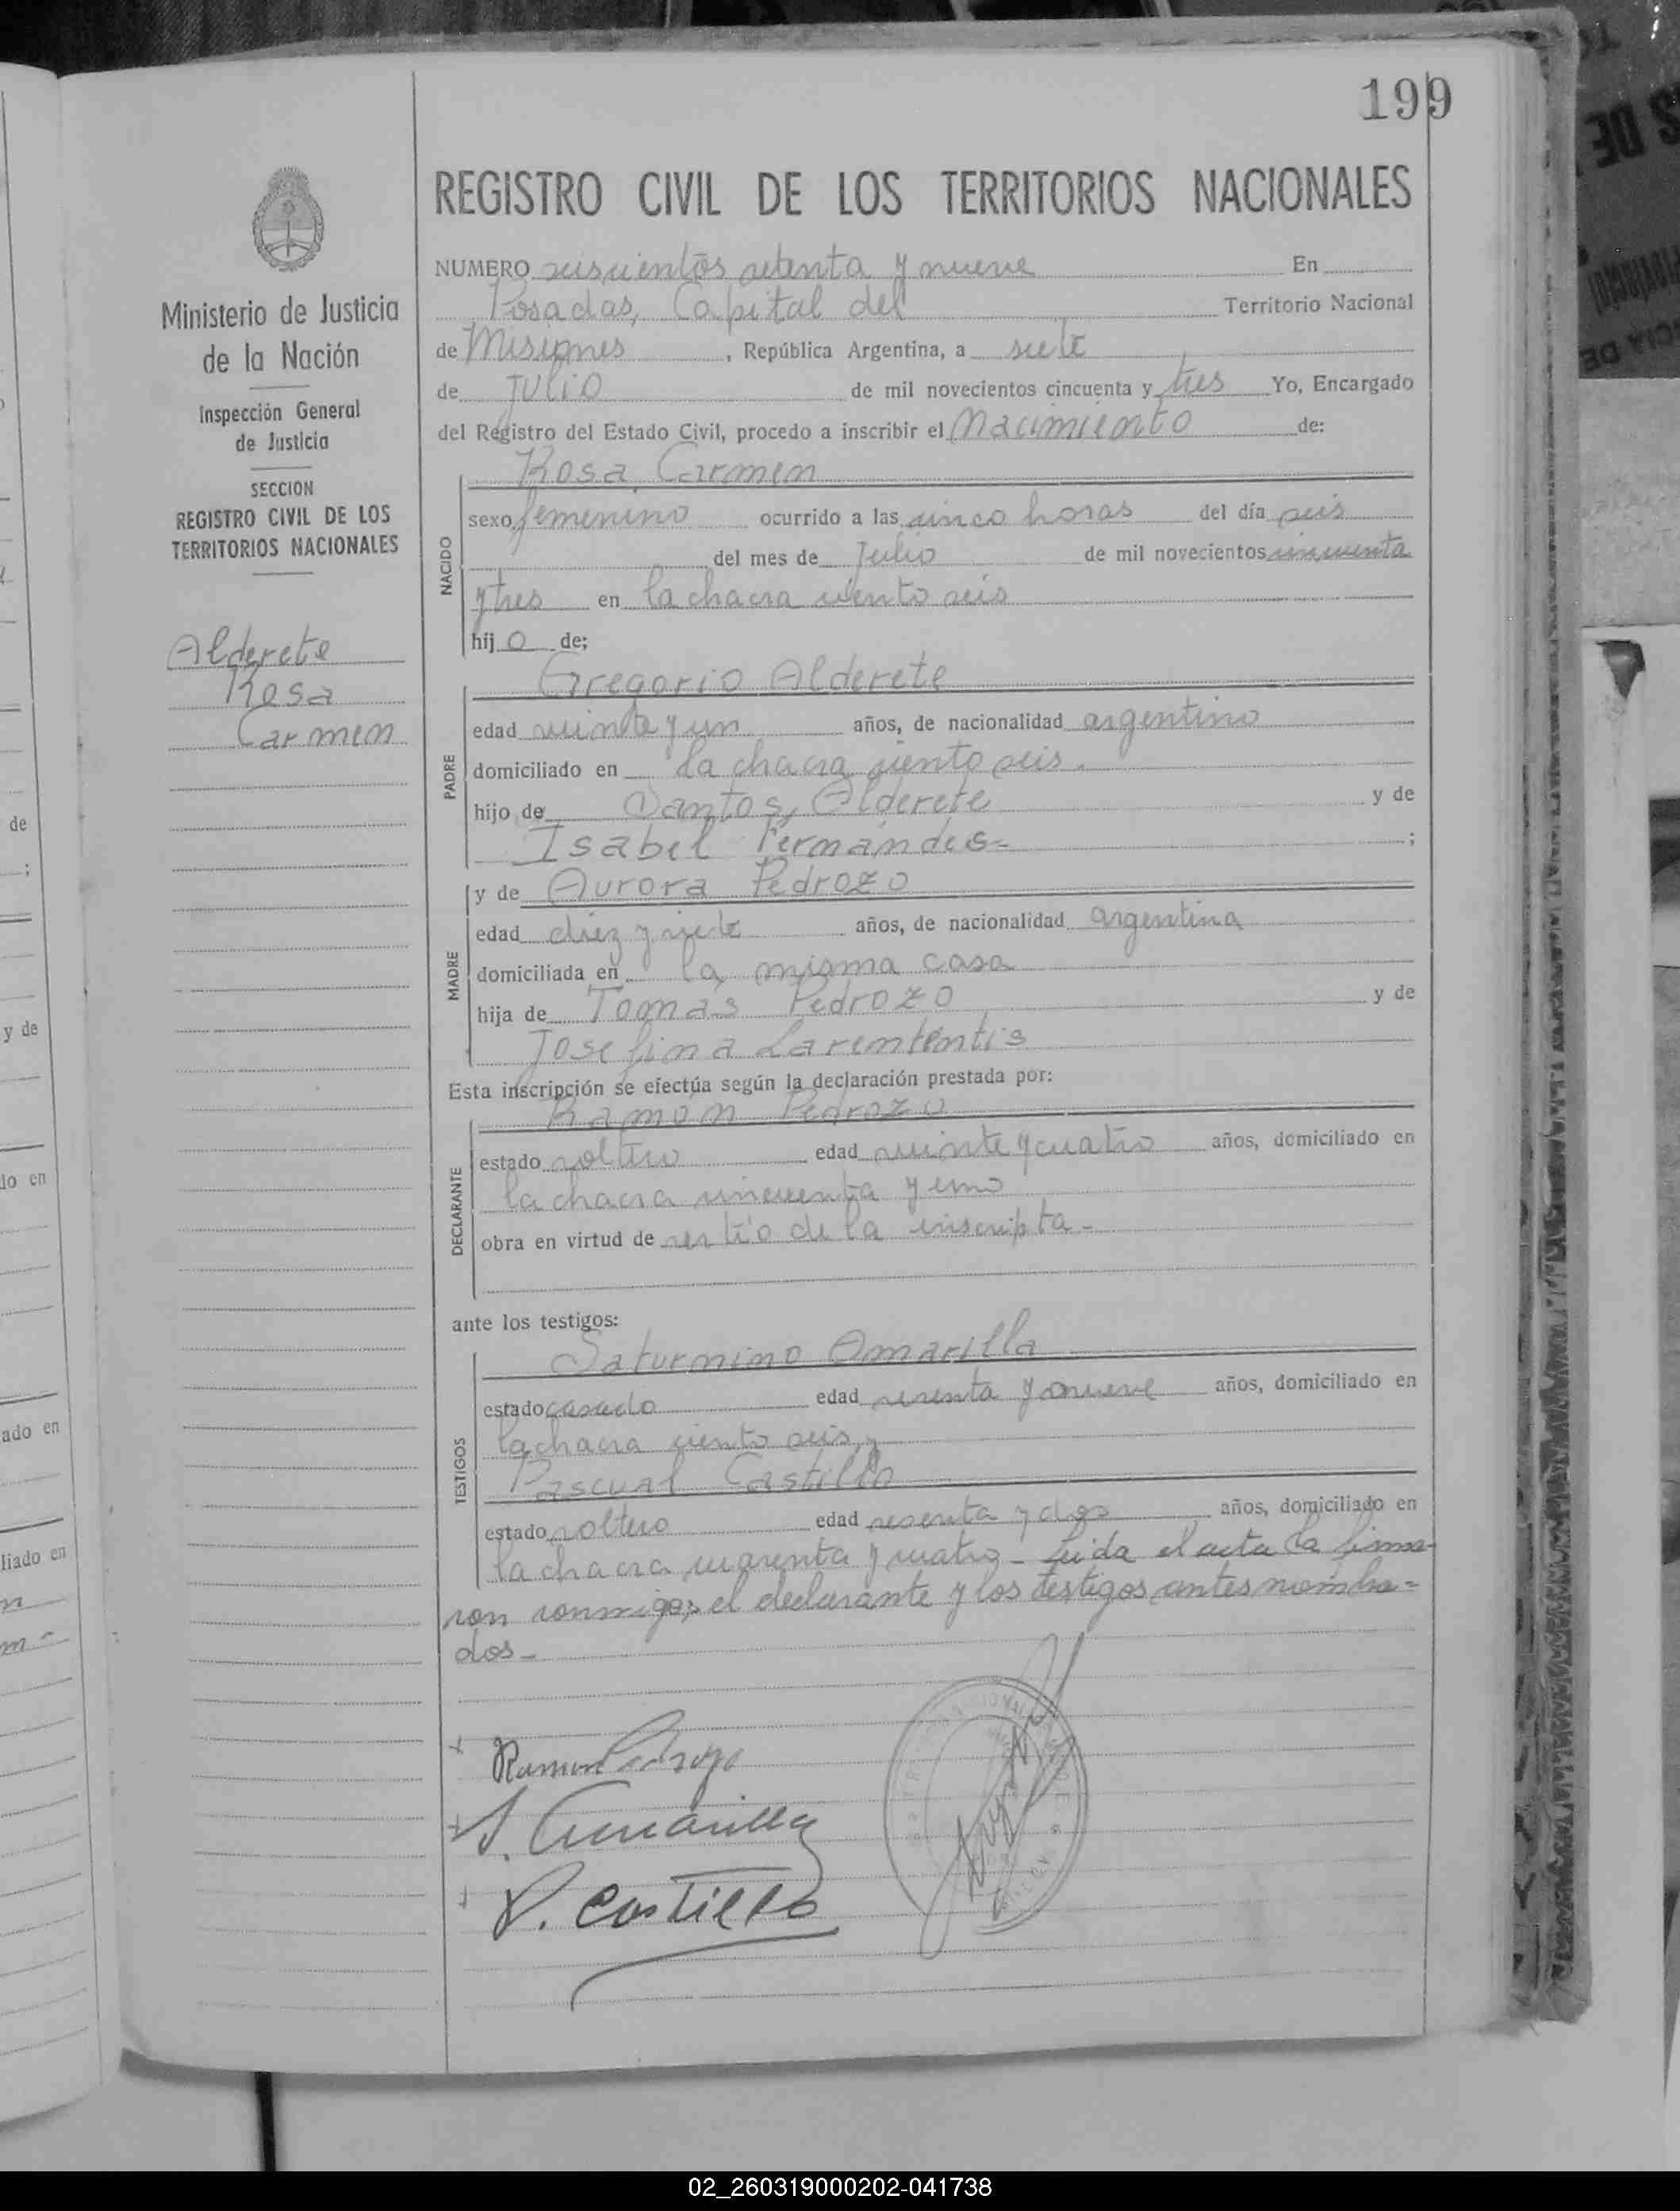 199
REGISTRO CIVIL DE LOS TERRITORIOS NACIONALES
Ministerio de Justicia
de la Nación
Inspección General
de Justicia
SECCION
REGISTRO CIVIL DE LOS
TERRITORIOS NACIONALES
Alderete
Rosa
Carmen
NUMERO seiscientos setenta y nueve En
Posadas, Capital del Territorio Nacional
de Misiones, República Argentina, a siete
de Julio de mil novecientos cincuenta y tres Yo, Encargado
del Registro del Estado Civil, procedo a inscribir el Nacimiento de:
NACIDO
Rosa Carmen
sexo femenino ocurrido a las cinco horas del día seis
del mes de Julio de mil novecientos cincuenta
y tres en la chacra ciento seis
hijo de:
PADRE
Gregorio Alderete
edad veinte y un años, de nacionalidad argentino
domiciliado en la chacra ciento seis.
hijo de Santos Alderete y de
Isabel Fernándes- ;
MADRE
y de Aurora Pedrozo
edad diez y siete años, de nacionalidad argentina
domiciliada en la misma casa
hija de Tomás Pedrozo y de
Josefina
Esta inscripción se efectúa según la declaración prestada por:
DECLARANTE
Ramón Pedrozo
estado soltero edad veinte y cuatro años, domiciliado en
la chacra cincuenta y uno
obra en virtud de ser tío de la inscripta-
ante los testigos:
TESTIGOS
Saturnino Amarilla
estado casado edad sesenta y nueve años, domiciliado en
la chacra ciento seis, y
Pascual Castillo
estado soltero edad sesenta y dos años, domiciliado en
la chacra cuarenta y cuatro- Leida el acta la firma-
ron conmigo, el declarante y los testigos antes nombra=
dos-
Ramon Pedrozo
S. Amarilla
P. Castillo
de
;
y de
do en
ado en
liado en
02_260319000202-041738